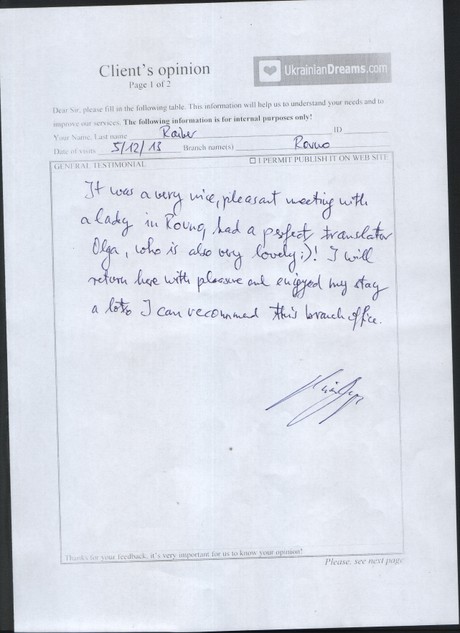 Client's opinion
Page 1 of 2
UkrainianDreams.com
Dear Sir, please fill in the following table. This information will help us to understand your needs and to
improve our services. The following information is for internal purposes only!
Your Name, Last name Raiber ID
Date of visits 5/12/13 Branch name(s) Rovno
GENERAL TESTIMONIAL I PERMIT PUBLISH IT ON WEB SITE
It was a very nice, pleasant meeting with
a lady in Rovno, had a perfect translator
Olga, who is also very lovely :)! I will
return here with pleasure and enjoyed my stay
a lot. I can recommend this branch office.
Thanks for your feedback, it's very important for us to know your opinion!
Please, see next page